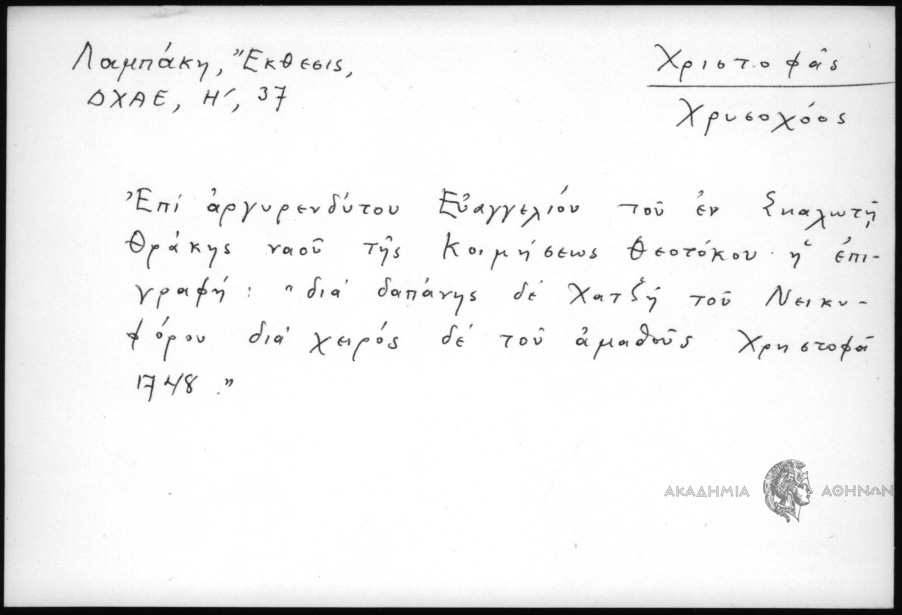 Λαμπάκη, Ἔκθεσις,
ΔΧΑΕ, Η', 37
Χριστοφᾶς
Χρυσοχόος
Ἐπί ἀργυρενδύτου Εὐαγγελίου τοῦ ἐν Σκαλωτῇ
Θράκης ναοῦ τῆς Κοιμήσεως Θεοτόκου ἡ ἐπι-
γραφή: "διά δαπάνης δέ Χατζή τοῦ Νεικυ-
φόρου διά χειρός δέ τοῦ ἀμαθοῦς Χρηστοφᾶ
1748."
ΑΚΑΔΗΜΙΑ ΑΘΗΝΩΝ